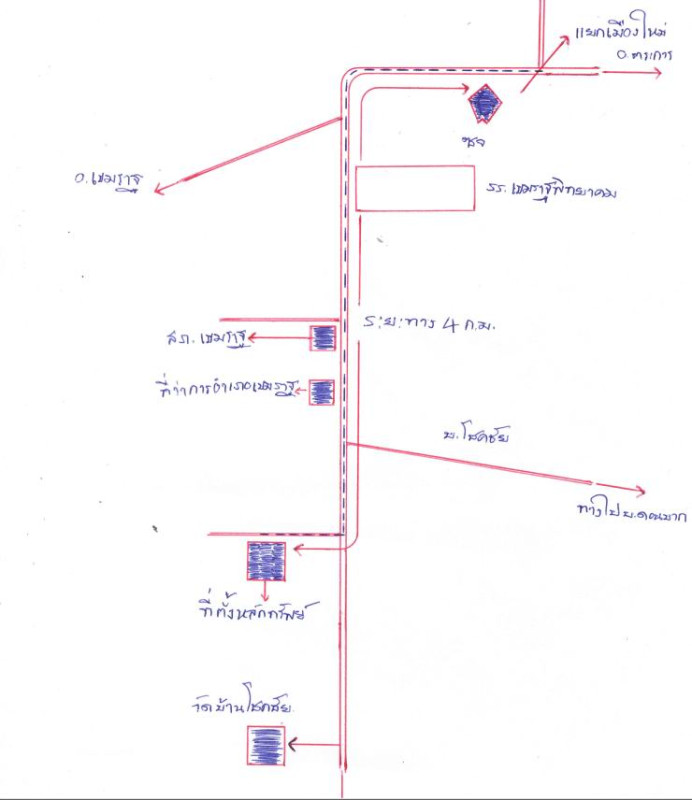 แยกเมืองใหม่
อ.ตระการ
อ.เขมราฐ
รร.เขมราฐพิทยาคม
ระยะทาง 4 ก.ม.
สภ.เขมราฐ
ที่ว่าการอำเภอเขมราฐ
บ.โชคชัย
ทางไป
ที่ตั้งหลักทรัพย์
วัดบ้านโชคชัย